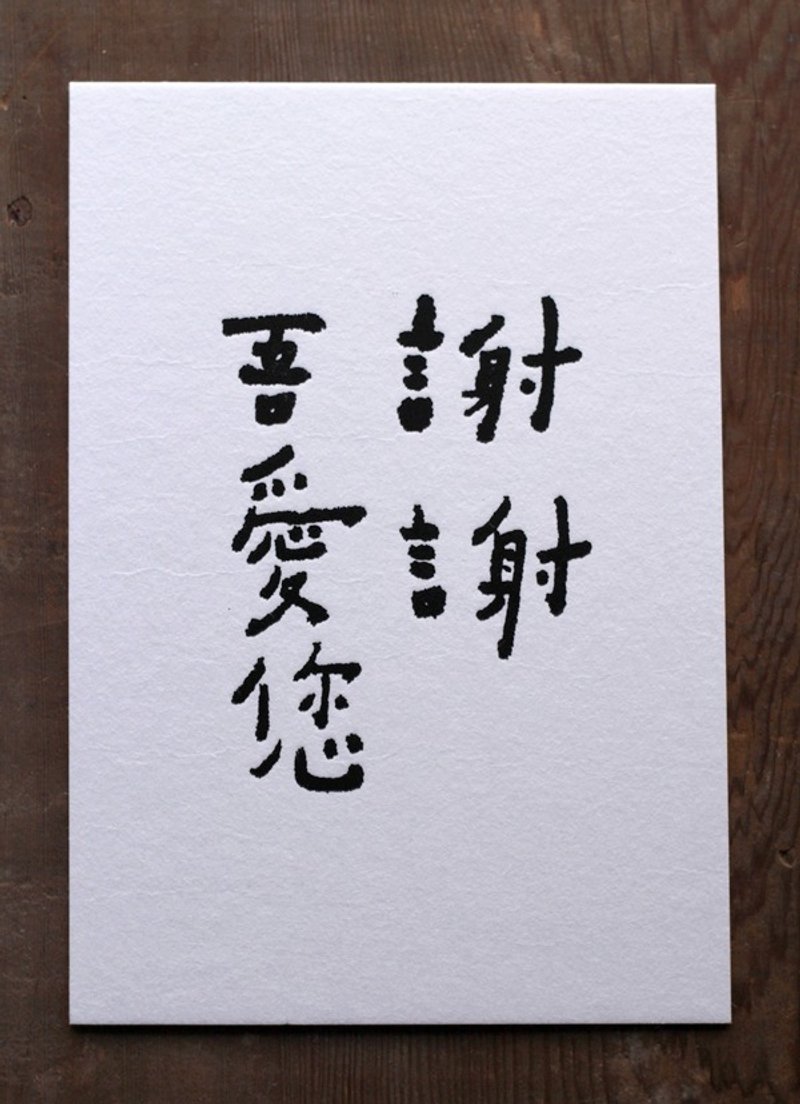 謝謝
吾愛您